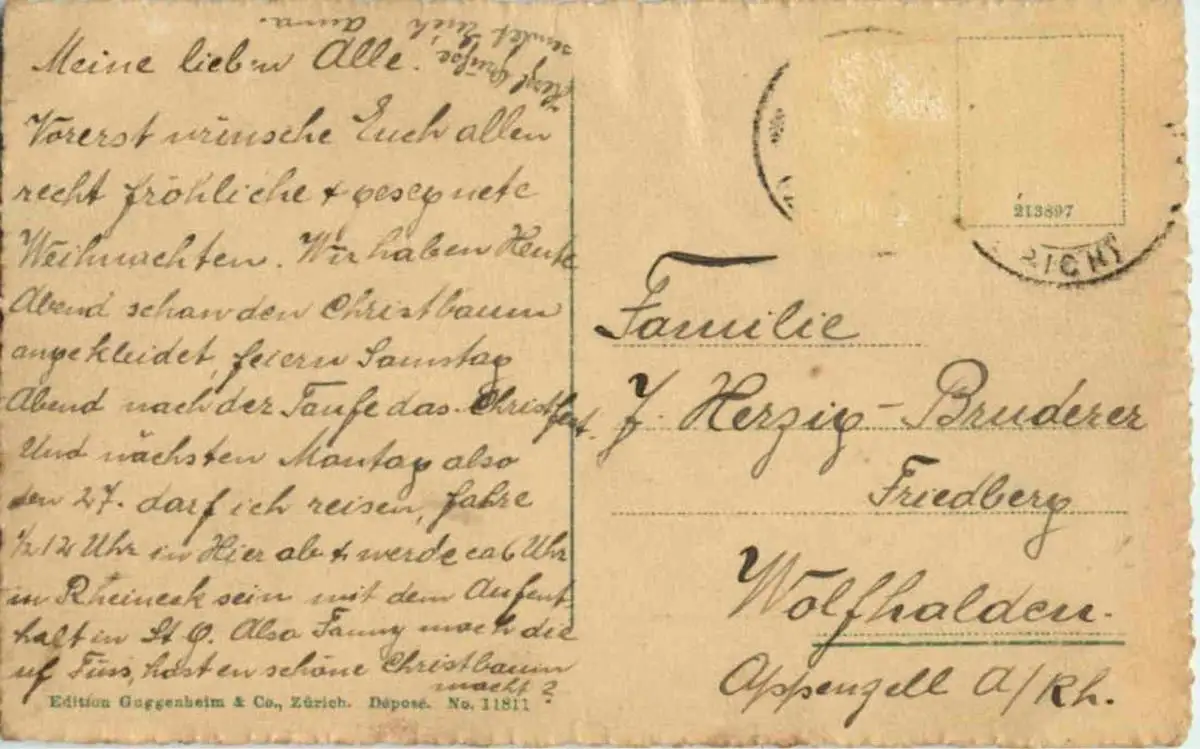 Meine lieben Alle.
Vorerst wünsche Euch allen
recht fröhliche + gesegnete
Weihnachten. Wir haben Heute
Abend schon den Christbaum
angekleidet, feiern Samstag
Abend nach der Taufe das Christfest.
Und nächsten Montag also
den 27. darf ich reisen, fahre
1/2 12 Uhr in Hier ab + werde ca 6 Uhr
in Rheineck sein mit dem Aufent
halt in St G. Also Fanny mach die
uf Füss, hast en schöne Christbaum
macht?
Herzl Grüße
sendet Euch
Anna.
Edition Guggenheim & Co., Zürich. Déposé. No. 11811
213897
RICHT
Familie
J. Herzig-Bruderer
Friedberg
Wolfhalden.
Appenzell A/Rh.